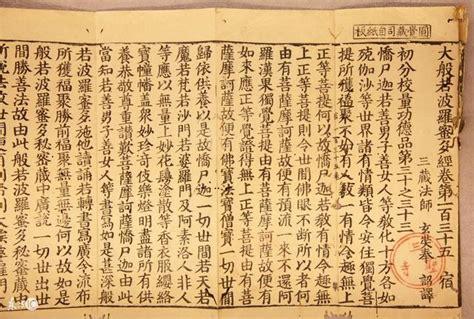 賢藏司自紙板
大般若波羅蜜多經卷第一百三十五 宿
三藏法師 玄奘奉 詔譯
初分校量功德品第三十之三十三
憍尸迦若善男子善女人等教化十方各如
殑伽沙等世界諸有情類皆令安住獨覺菩
提所獲福聚不如有人教一有情令趣無
上正等菩提何以故憍尸迦若教有情令趣無
上正等菩提則令世間佛眼不斷所以者何
由有菩薩摩訶薩故便有預流一來不還阿
羅漢果獨覺菩提由有菩薩摩訶薩故便有
如來應正等覺證得無上正等菩提由有菩
薩摩訶薩故便有佛寶法寶僧寶一切世間
歸依供養以是故憍尸迦一切世間若天若
魔若梵若沙門若婆羅門及阿素洛人非人
等應以無量上妙花鬘塗散等香衣服瓔珞
寶幢幡蓋眾妙珍奇伎樂燈明盡諸所有供
養恭敬尊重讚歎菩薩摩訶薩憍尸迦由此
當知若善男子善女人等書寫如是甚深般
若波羅蜜多施他讀誦若轉書寫廣令流布
所獲福聚勝前福聚無量無邊何以故如是
般若波羅蜜多秘密藏中廣說一切世出世
間勝善法故由此般若波羅蜜多秘密藏中
所說法故世間